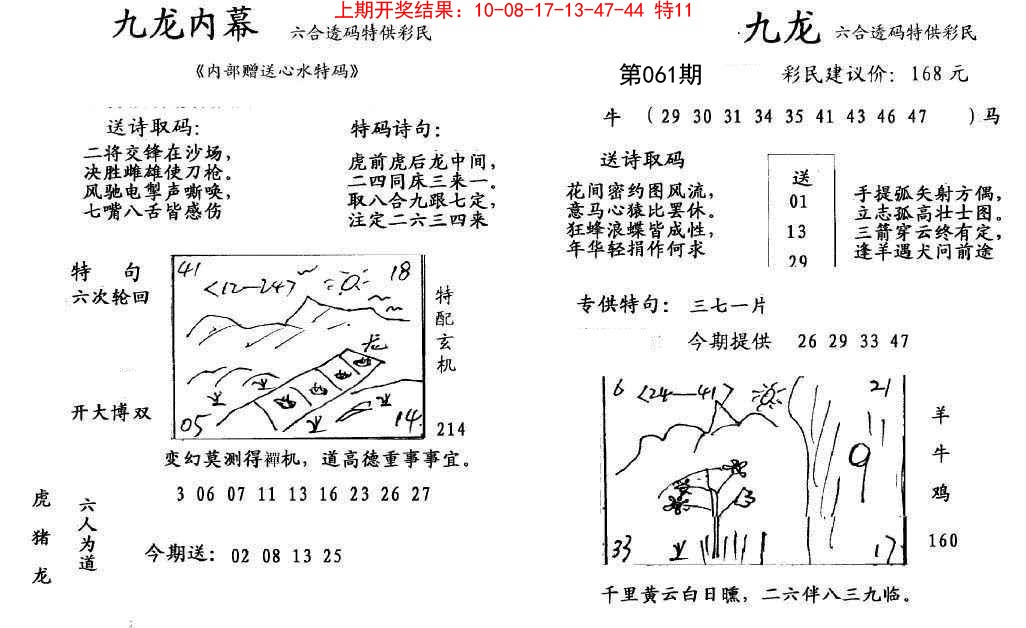 上期开奖结果：10-08-17-13-47-44 特11
九龙内幕 六合透码特供彩民
《内部赠送心水特码》
送诗取码：
二将交锋在沙场，
决胜雌雄使刀枪。
风驰电掣声嘶唤，
七嘴八舌皆感伤
特码诗句：
虎前虎后龙中间，
二四同床三来一。
取八合九跟七定，
注定二六三四来
特 句
六次轮回
开大博双
41
18
<12—24>
龙
05
14
特配玄机
214
变幻莫测得禪机，道高德重事事宜。
3 06 07 11 13 16 23 26 27
虎猪龙
六人为道
今期送：02 08 13 25
九龙 六合透码特供彩民
第061期
彩民建议价：168元
牛 （29 30 31 34 35 41 43 46 47 ）马
送诗取码
花间密约图风流，
意马心猿比罢休。
狂蜂浪蝶皆成性，
年华轻捐作何求
送
01
13
29
手提弧矢射方偶，
立志孤高壮士图。
三箭穿云终有定，
逢羊遇犬问前途
专供特句： 三七一片
今期提供 26 29 33 47
6
<24—41>
21
9
33
17
羊
牛
鸡
160
千里黄云白日曛，二六伴八三九临。